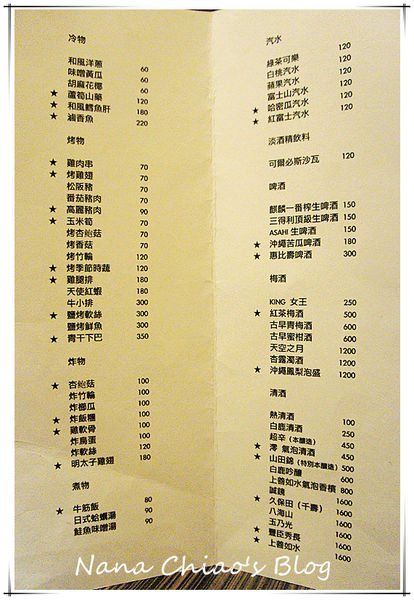 冷物
和風洋蔥
味噌黃瓜 60
胡麻花椰 60
★ 蘆筍山藥 120
★ 和風鱈魚肝 180
★ 滷香魚 220
烤物
★ 雞肉串 70
★ 烤雞翅 70
松阪豬 70
番茄豬肉 70
★ 高麗豬肉 90
★ 玉米筍 70
烤杏鮑菇 70
烤香菇 70
烤竹輪 120
★ 烤季節時蔬 120
★ 雞腿排 180
天使紅蝦 180
牛小排 300
★ 鹽烤軟絲 300
鹽烤鮮魚 300
★ 青干下巴 350
炸物
★ 杏鮑菇 100
炸竹輪 100
炸櫛瓜 100
★ 炸飯糰 100
★ 雞軟骨 100
炸鳥蛋 100
炸軟絲 120
★ 明太子雞翅 180
煮物
★ 牛筋飯 80
日式蛤蠣湯 90
鮭魚味噌湯 90
汽水
綠茶可樂 120
白桃汽水 120
蘋果汽水 120
富士山汽水 120
★ 哈密瓜汽水 120
★ 紅富士汽水 120
淡酒精飲料
可爾必斯沙瓦 120
啤酒
麒麟一番榨生啤酒 150
三得利頂級生啤酒 150
ASAHI 生啤酒 150
★ 沖繩苦瓜啤酒 180
★ 惠比壽啤酒 300
梅酒
KING 女王 250
★ 紅茶梅酒 500
古早青梅酒 600
古早蜜柑酒 600
天空之月 1200
杏露濁酒 1200
★ 沖繩鳳梨泡盛 1200
清酒
熱清酒 100
白鹿清酒 250
超辛（本釀造） 450
★ 澪 氣泡清酒 450
★ 山田錦（特別本釀造） 500
白鹿吟釀 600
上善如水氣泡香檳 800
誠鏡 1600
★ 久保田（千壽） 1600
八海山 1600
玉乃光 1600
★ 豐臣秀長 1600
★ 上善如水 1600
Nana Chiao's Blog